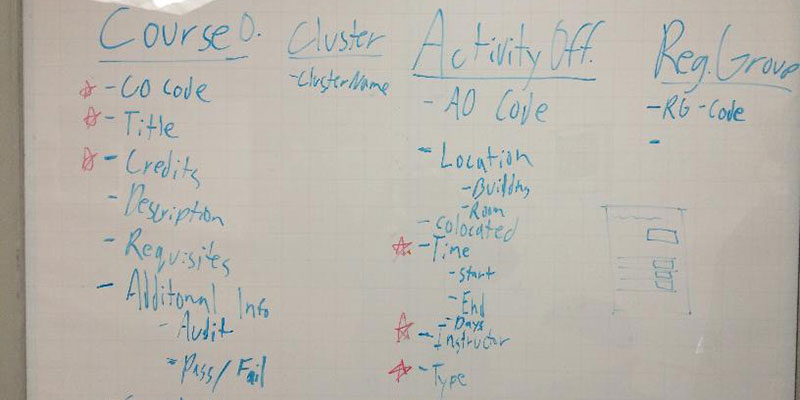 Course O.
- CO Code
- Title
- Credits
- Description
- Requisites
- Additonal Info
- Audit
- Pass/Fail
Cluster
- ClusterName
Activity Off.
- AO Code
- Location
- Building
- Room
- Colocated
- Time
- Start
- End
- Days
- Instructor
- Type
Reg. Group
- RG - Code
-